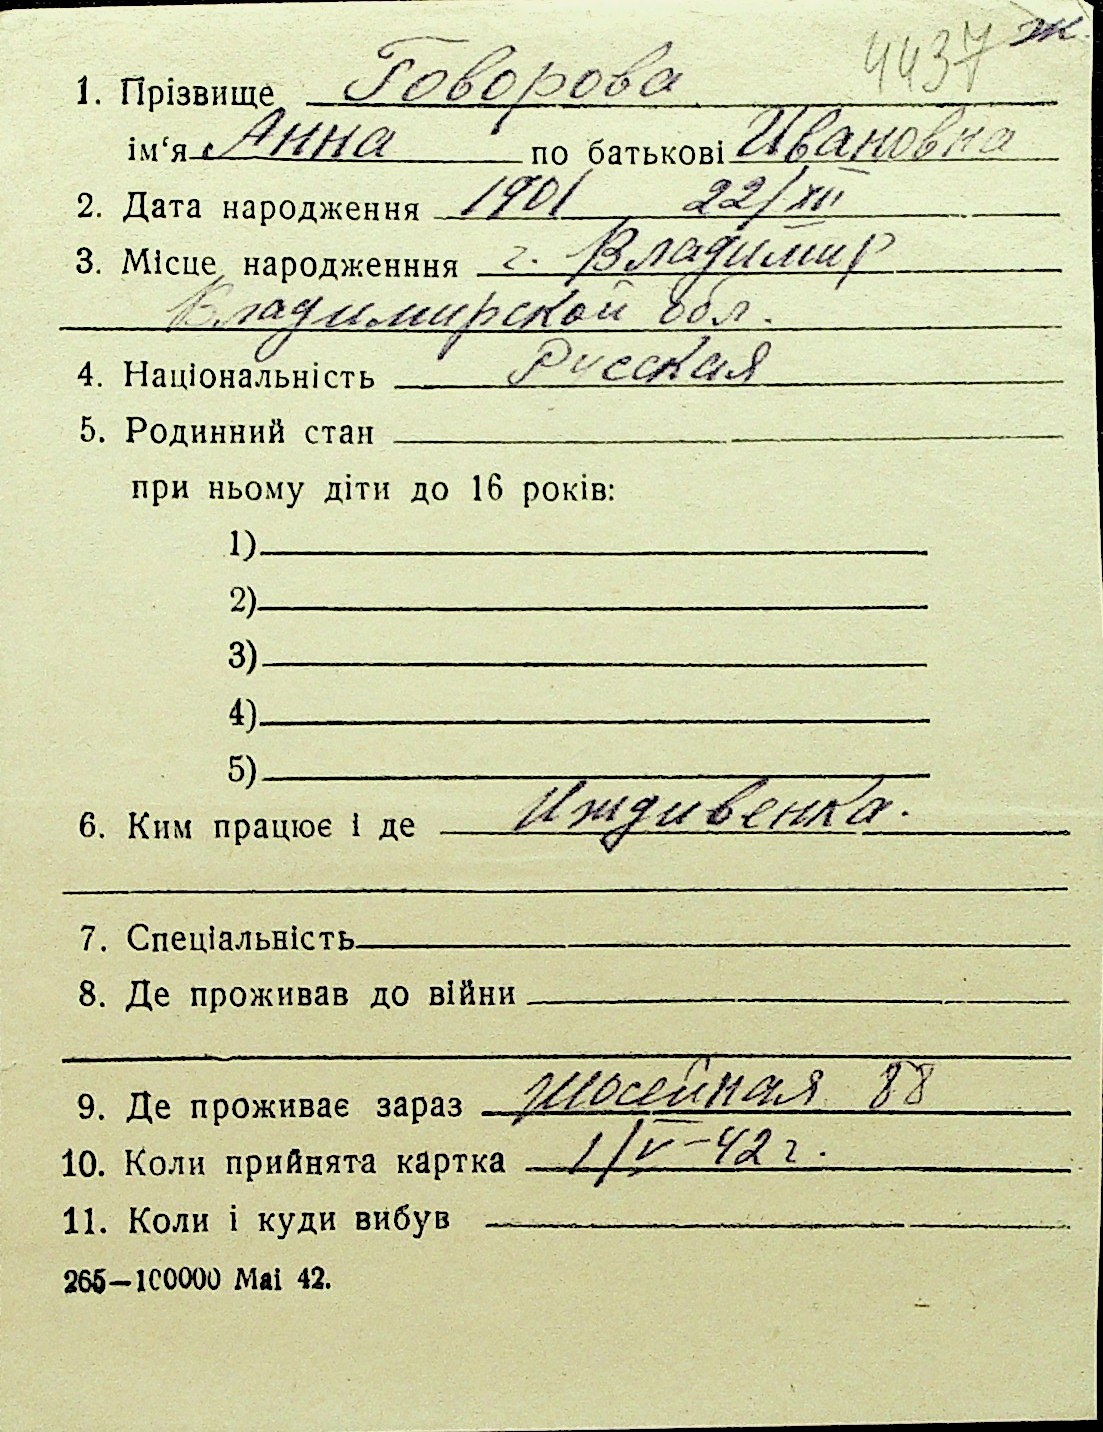 4437 ж.
1. Прізвище Говорова
ім‘я Анна по батькові Ивановна
2. Дата народження 1901 22/XII
3. Місце народженння г. Владимир
Владимирской обл.
4. Національність Русская
5. Родинний стан
при ньому діти до 16 років:
1)
2)
3)
4)
5)
6. Ким працює і де Иждивенка.
7. Спеціальність
8. Де проживав до війни
9. Де проживає зараз Шосейная 88
10. Коли прийнята картка 1/V-42 г.
11. Коли і куди вибув
265—100000 Mai 42.